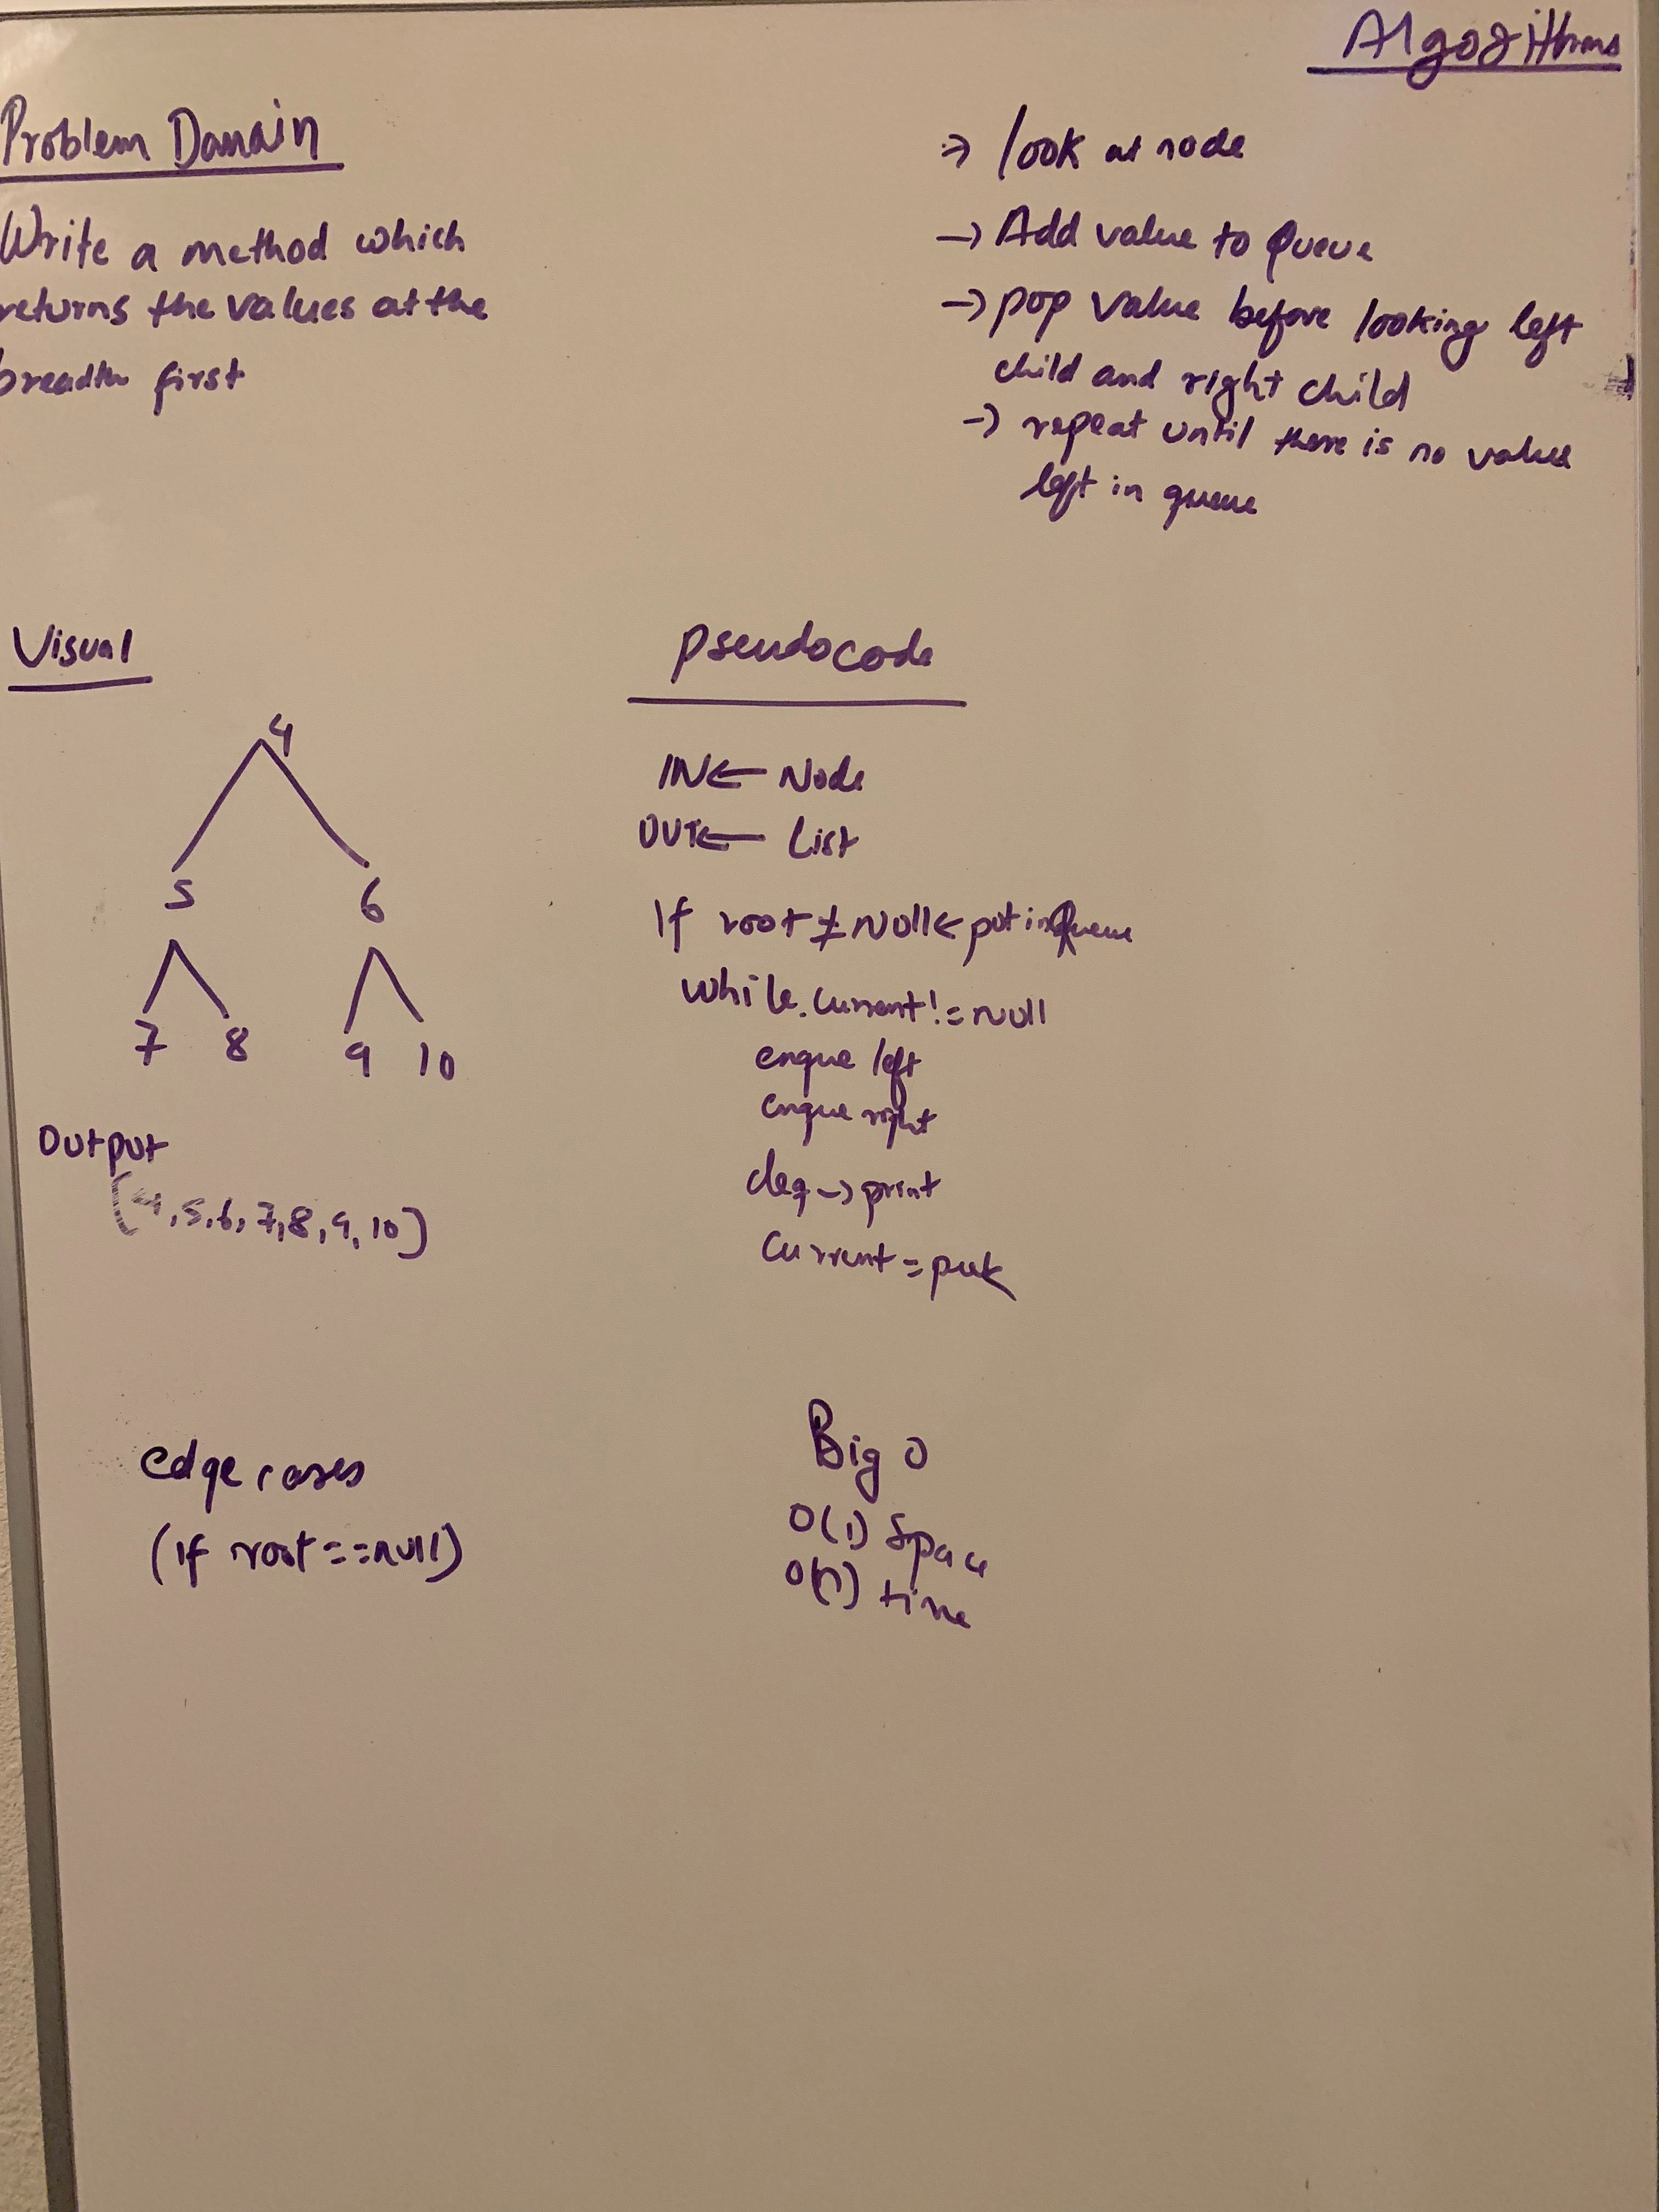 Algorithms
Problem Domain
Write a method which
returns the values at the
breadth first
→ look at node
→ Add value to Queue
→ pop value before looking left
child and right child
→ repeat until there is no value
left in queue
Visual
4
5 6
7 8 9 10
Output
[4,5,6,7,8,9,10]
pseudocode
IN ← Node
OUT ← List
If root ≠ Null ← put in Queue
while.current!=null
enque left
enque right
deq → print
Current = peek
edge cases
(if root==null)
Big O
O(1) Space
O(n) time